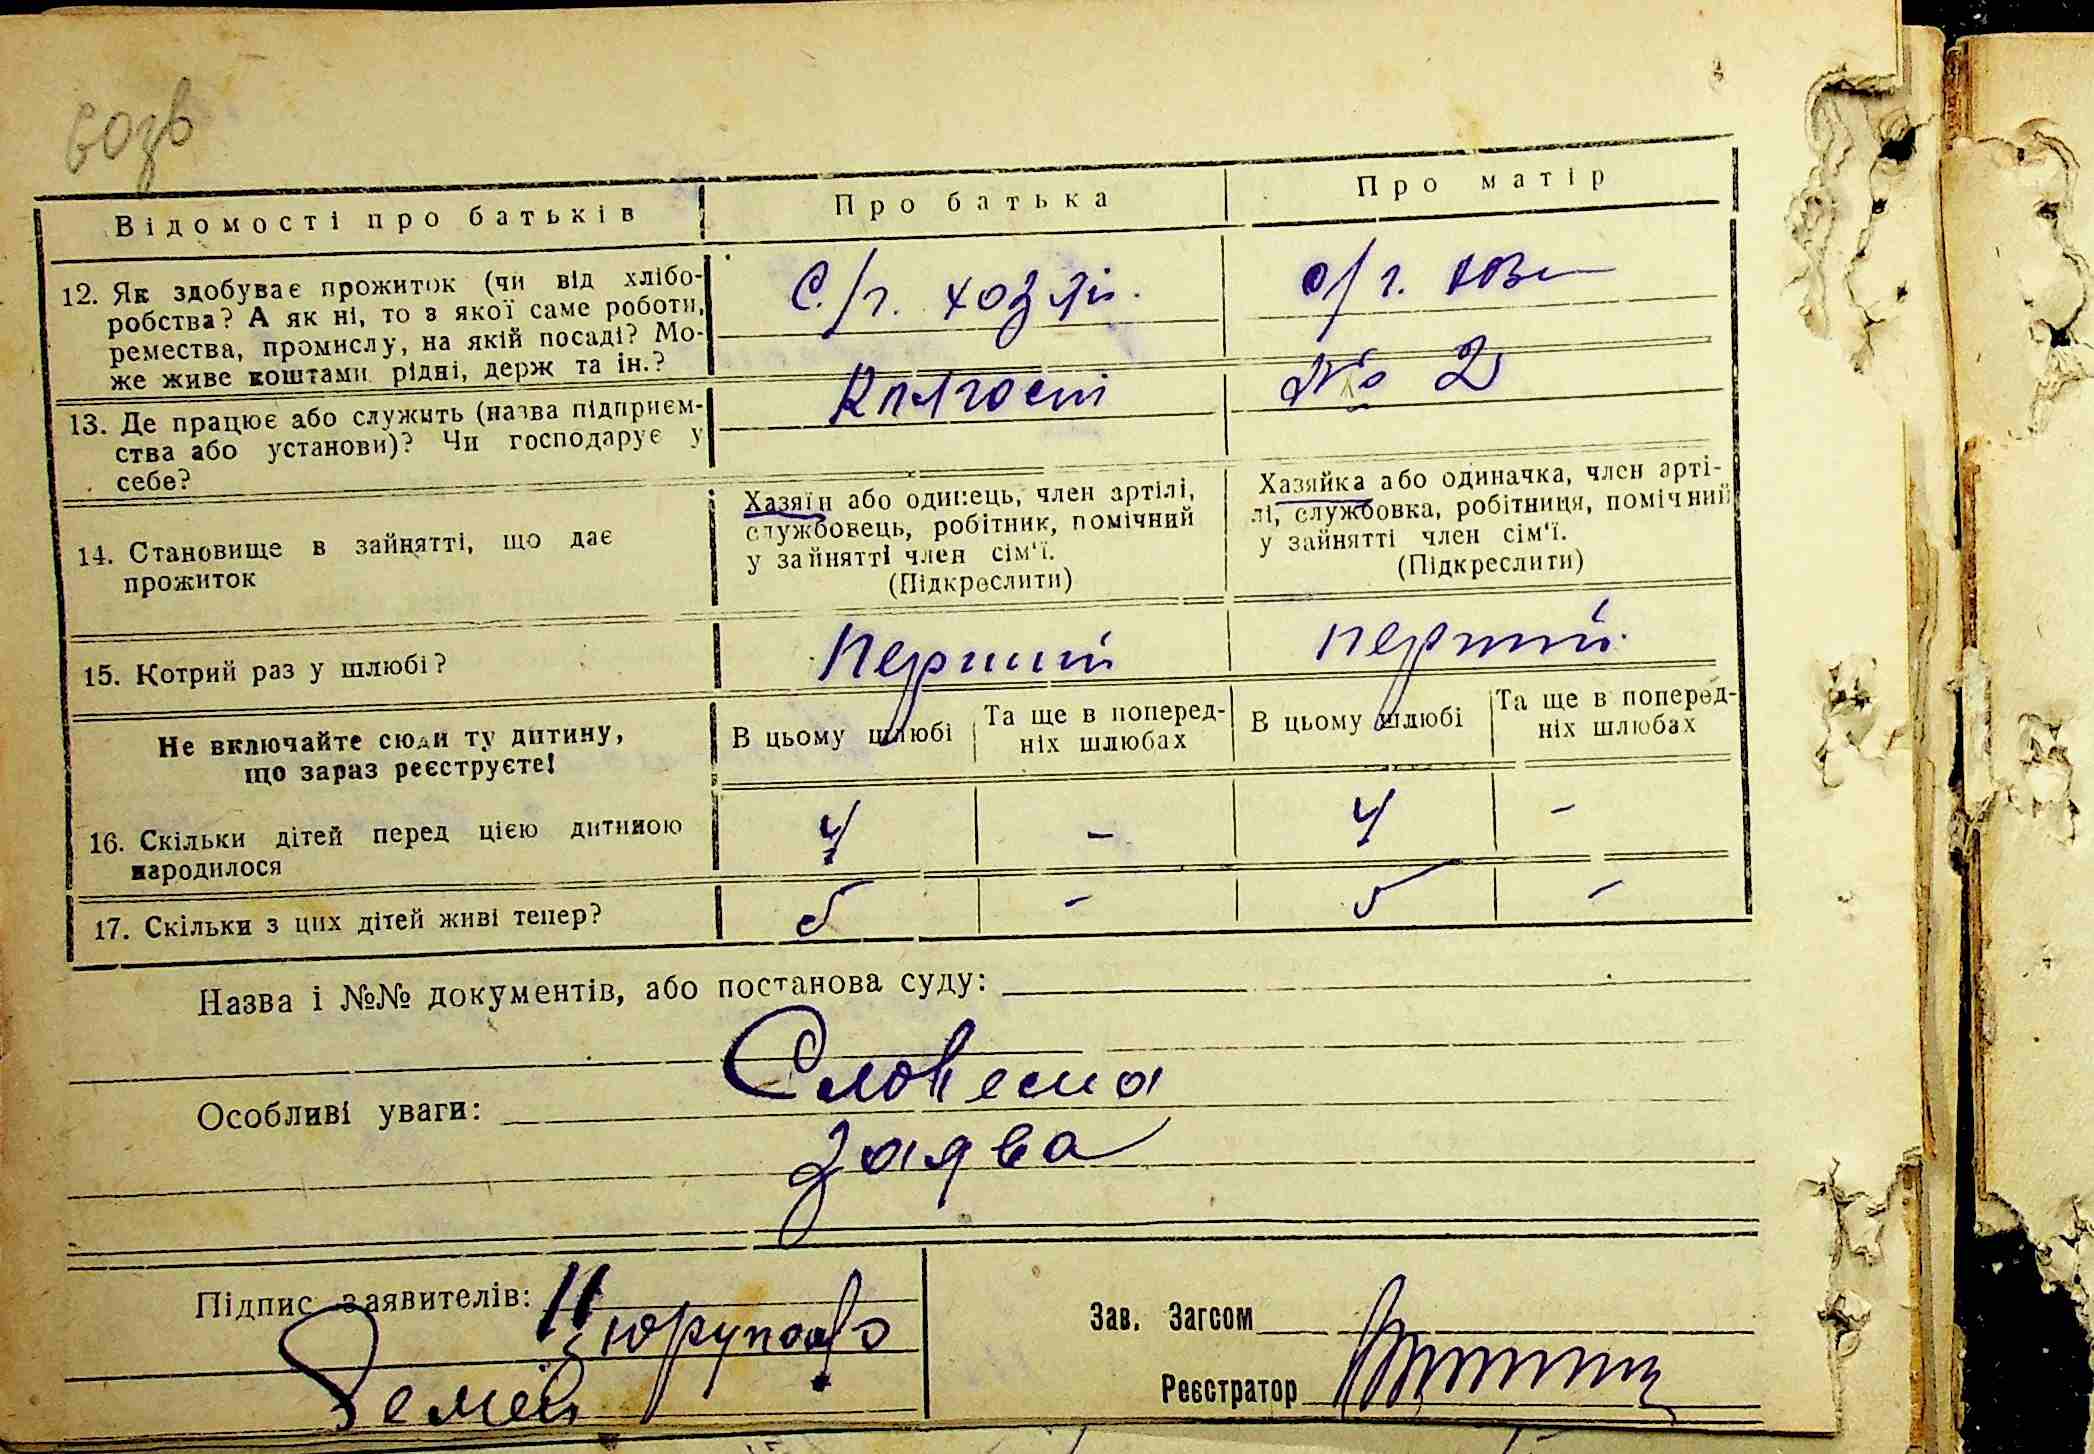 возв
Відомості про батьків
Про батька
Про матір
12. Як здобуває прожиток (чи від хлібо-
робства? А як ні, то з якої саме роботи,
ремества, промислу, на якій посаді? Мо-
же живе коштами рідні, держ та ін.?
С./г.
с/г.
13. Де працює або служить (назва підприєм-
ства або установи)? Чи господарує у
себе?
№ 2
14. Становище в зайнятті, що дає
прожиток
Хазяїн або одинець, член артілі,
службовець, робітник, помічний
у зайнятті член сім'ї.
(Підкреслити)
Хазяйка або одиначка, член арті-
лі, службовка, робітниця, помічний
у зайнятті член сім'ї.
(Підкреслити)
15. Котрий раз у шлюбі?
Перший
перший.
Не включайте сюди ту дитину,
що зараз реєструєте!
В цьому шлюбі
Та ще в поперед-
ніх шлюбах
В цьому шлюбі
Та ще в поперед-
ніх шлюбах
16. Скільки дітей перед цією дитиною
народилося
4 - 4 -
17. Скільки з цих дітей живі тепер?
5 - 5 -
Назва і №№ документів, або постанова суду:
Словесна
Особливі уваги:
заява
Підпис заявителів:
Зав. Загсом
Реєстратор